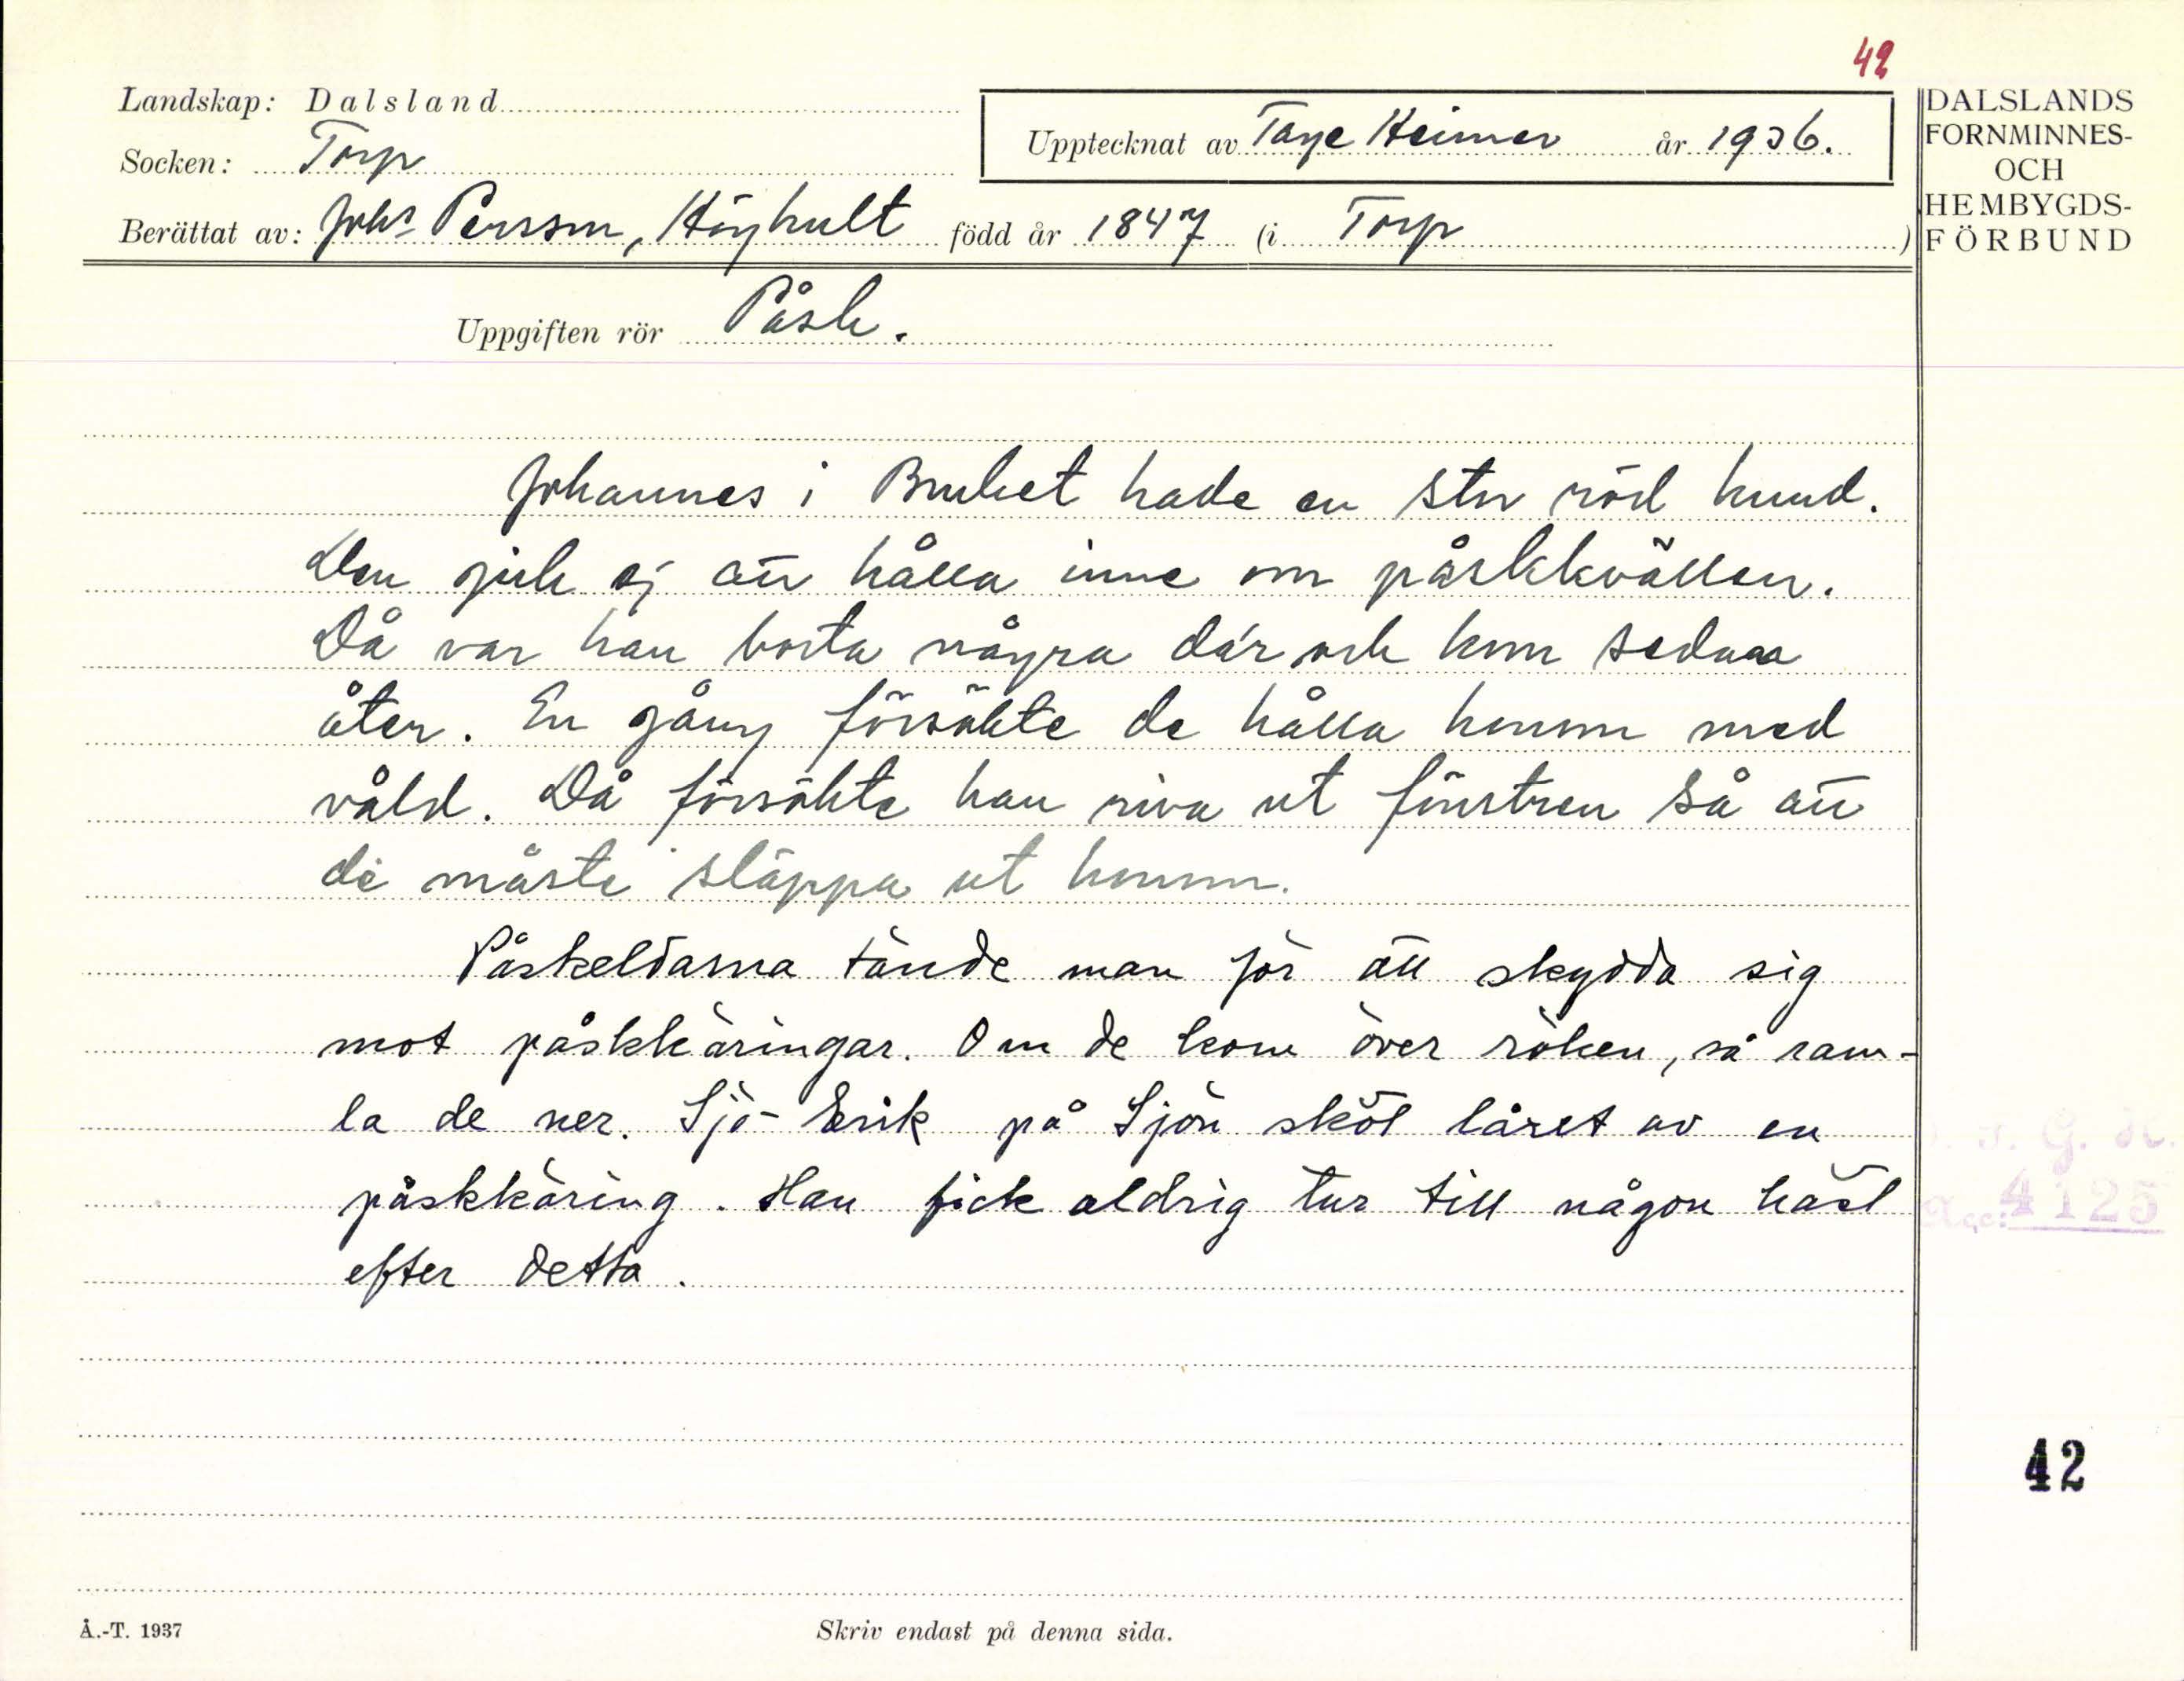 42
Landskap: Dalsland
Upptecknat av Tage Heimer år 1936.
Socken: Torp
Berättat av: Johs Persson, Höghult född år 1847 (i Torp)
DALSLANDS
FORNMINNES-
OCH
HEMBYGDS-
FÖRBUND
Uppgiften rör Påsk.
Johannes i Bruket hade en stor röd hund.
Den gick ej att hålla inne om påskkvällen.
Då var han borta några dar och kom sedan
åter. En gång försökte de hålla honom med
våld. Då försökte han riva ut fönstren så att
de måste släppa ut honom.
Påskeldarna tände man för att skydda sig
mot påskkäringar. Om de kom över röken, så ram-
la de ner. Sjö-Erik på Sjön sköt låret av en
påskkäring. Han fick aldrig tur till någon häst
efter detta.
Acc: 4125
42
Å.-T. 1937
Skriv endast på denna sida.